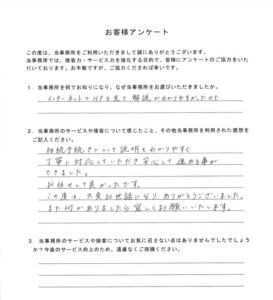 お客様アンケート
この度は、当事務所をご利用いただきまして誠にありがとうございます。
当事務所では、接客力・サービス力を強化する目的で、皆様にアンケートのご協力をいた
だいております。お手数ですが、ご協力くだされば幸いです。
1．当事務所を何でお知りになり、なぜ当事務所をお選びいただきましたか。
インターネットでHPを見て 解説がわかりやすかったので
2．当事務所のサービスや接客について感じたこと、その他当事務所を利用された感想を
ご記入ください。
相続手続きについて説明もわかりやすく
丁寧に対応していただき安心して進める事が
できました。
お任せして良かったです。
この度は、大変お世話になり、ありがとうございました。
また何かありましたら宜しくお願いいたします。
3．当事務所のサービスや接客についてお気に召さない点はありませんでしたでしょう
か？今後のサービス向上のため、遠慮なくご指摘ください。